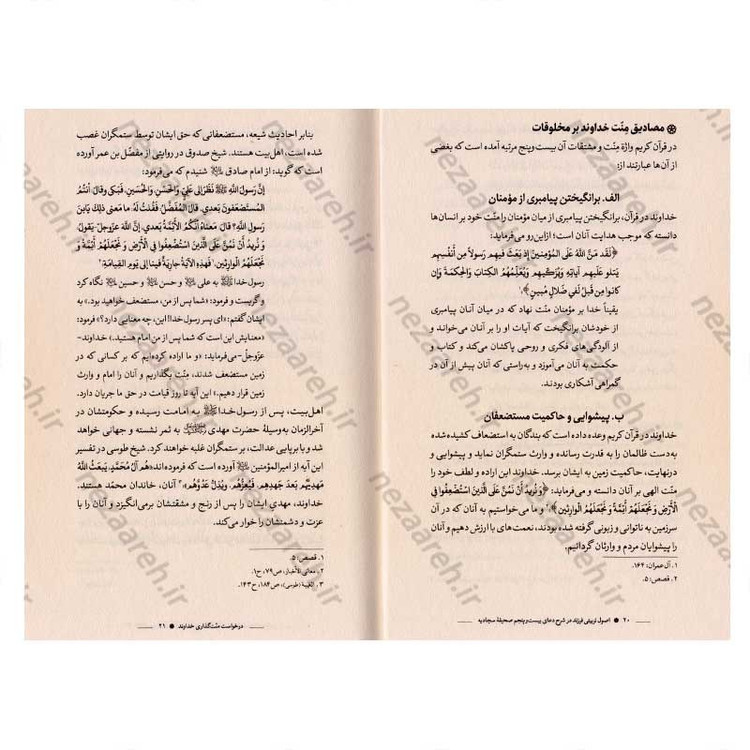 مصادیق مِنّت خداوند بر مخلوقات
در قرآن کریم واژهٔ مِنّت و مشتقات آن بیست‌وپنج مرتبه آمده است که بعضی
از آن‌ها عبارتند از:
الف. برانگیختن پیامبری از مؤمنان
خداوند در قرآن، برانگیختن پیامبری از میان مؤمنان را مِنّت خود بر انسان‌ها
دانسته که موجب هدایت آنان است؛ ازاین‌رو می‌فرماید:
﴿لَقَد مَنَّ اللهُ عَلَى المُؤمِنينَ إِذ بَعَثَ فيهِم رَسولاً مِن أَنفُسِهِم
يَتلو عَلَيهِم آياتِهِ وَيُزَكّيهِم وَيُعَلِّمُهُمُ الكِتابَ وَالحِكمَةَ وَإِن
كانوا مِن قَبلُ لَفي ضَلالٍ مُبينٍ﴾؛۱
یقیناً خدا بر مؤمنان منّت نهاد که در میان آنان پیامبری
از خودشان برانگیخت که آیات او را بر آنان می‌خواند و
از آلودگی‌های فکری و روحی پاکشان می‌کند و کتاب و
حکمت به آنان می‌آموزد و به‌راستی که آنان پیش از آن در
گمراهی آشکاری بودند.
ب. پیشوایی و حاکمیت مستضعفان
خداوند در قرآن کریم وعده داده است که بندگان به استضعاف کشیده شده
به‌دست ظالمان را به قدرت رسانده و وارث ستمگران نماید و پیشوایی و
درنهایت، حاکمیت زمین به ایشان برسد. خداوند این اراده و لطف خود را
منّت الهی بر آنان دانسته و می‌فرماید: ﴿وَنُريدُ أَن نَمُنَّ عَلَى الَّذينَ استُضعِفوا فِي
الأَرضِ وَنَجعَلَهُم أَئِمَّةً وَنَجعَلَهُمُ الوارِثينَ﴾؛۲ و ما می‌خواستیم به آنان که در آن
سرزمین به ناتوانی و زبونی گرفته شده بودند، نعمت‌های باارزش دهیم و آنان
را پیشوایان مردم و وارثان گردانیم.
۱. آل عمران: ۱۶۴.
۲. قصص: ۵.
۲۰ ● اصول تربیتی فرزند در شرح دعای بیست‌وپنجم صحیفهٔ سجادیه
بنابر احادیث شیعه، مستضعفانی که حق ایشان توسط ستمگران غصب
شده است، اهل‌بیت هستند. شیخ صدوق در روایتی از مفضّل بن عمر آورده
است که گوید: از امام صادق شنیدم که می‌فرمود:
إِنَّ رَسولَ اللهِ نَظَرَ إِلى عَلِيٍّ وَالحَسَنِ وَالحُسَينِ فَبَكى وَقالَ: أَنتُمُ
المُستَضعَفونَ بَعدي. قالَ المُفَضَّلُ: فَقُلتُ لَهُ: ما مَعنى ذلِكَ يَابنَ
رَسولِ اللهِ؟ قالَ: مَعناهُ أَنَّكُمُ الأَئِمَّةُ بَعدي. إِنَّ اللهَ عَزَّوَجَلَّ يَقولُ:
﴿وَنُريدُ أَن نَمُنَّ عَلَى الَّذينَ استُضعِفوا فِي الأَرضِ وَنَجعَلَهُم أَئِمَّةً وَ
نَجعَلَهُمُ الوارِثينَ﴾،۱ فَهذِهِ الآيَةُ جارِيَةٌ فينا إِلى يَومِ القِيامَةِ؛۲
رسول خدا به علی و حسن و حسین نگاه کرد
و گریست و فرمود: «شما پس از من، مستضعف خواهید بود.» به
ایشان گفتم: «ای پسر رسول خدا! این، چه معنایی دارد؟» فرمود:
«معنایش این است که شما پس از من امام هستید.» خداوند-
عزّوجلّ- می‌فرماید: «و ما اراده کرده‌ایم که بر کسانی که در
زمین مستضعف شدند، منّت بگذاریم و آنان را امام و وارث
زمین قرار دهیم.» این آیه تا روز قیامت در حق ما جریان دارد.
اهل‌بیت، پس از رسول خدا به امامت رسیده و حکومتشان در
آخرالزمان به‌وسیلهٔ حضرت مهدی به ثمر نشسته و جهانی خواهد
شد و با برپایی عدالت، بر ستمگران غلبه خواهند کرد. شیخ طوسی در تفسیر
این آیه از امیرالمؤمنین آورده است که فرموده‌اند: «هُم آلُ مُحَمَّدٍ، يَبعَثُ اللهُ
مَهدِيَّهُم بَعدَ جَهدِهِم، فَيُعِزُّهُم، وَيُذِلُّ عَدُوَّهُم؛»۳ آنان، خاندان محمد هستند.
خداوند، مهدی ایشان را پس از رنج و مشقتشان برمی‌انگیزد و آنان را با
عزت و دشمنشان را خوار می‌کند.
۱. قصص: ۵.
۲. معانی الأخبار، ص۷۹، ح۱.
۳. الغیبة (طوسی)، ص۱۸۴، ح۱۴۳.
درخواست منّت‌گذاری خداوند ● ۲۱
nezaareh.ir